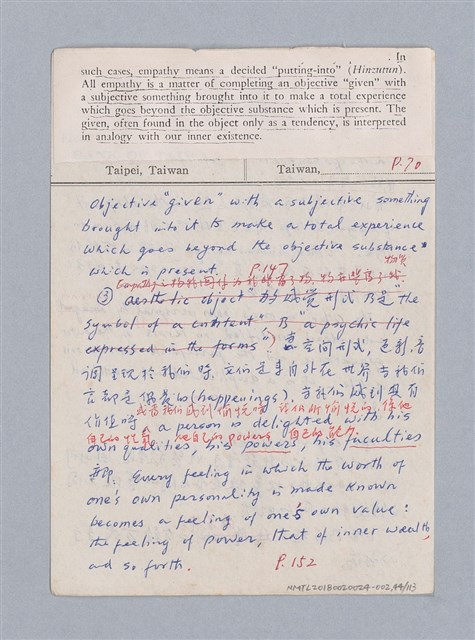 In
such cases, empathy means a decided “putting-into” (Hinzutun).
All empathy is a matter of completing an objective “given” with
a subjective something brought into it to make a total experience
which goes beyond the objective substance which is present. The
given, often found in the object only as a tendency, is interpreted
in analogy with our inner existence.
Taipei, Taiwan Taiwan, P.70
Objective "given" with a subjective something
brought into it to make a total experience
which goes beyond the objective substance
which is present. P.147
③ aesthetic object "的感覺形式 B是 "the
Symbol of a content" B "a psychic life
expressed in the forms".) 空間形式,色彩,音
調呈現於我們時,它們是來自外在世界,与我們
言都是偶然的(happenings),当我們感到具有
價值時 a person is delighted with his
自己的性質 他自己的powers 自己的能力
own qualities, his powers, his faculties
Every feeling in which the worth of
one's own personality is made known
becomes a feeling of one's own value:
the feeling of power, that of inner wealth,
ad so forth. P.152
NMTL20180020024-002,44/113